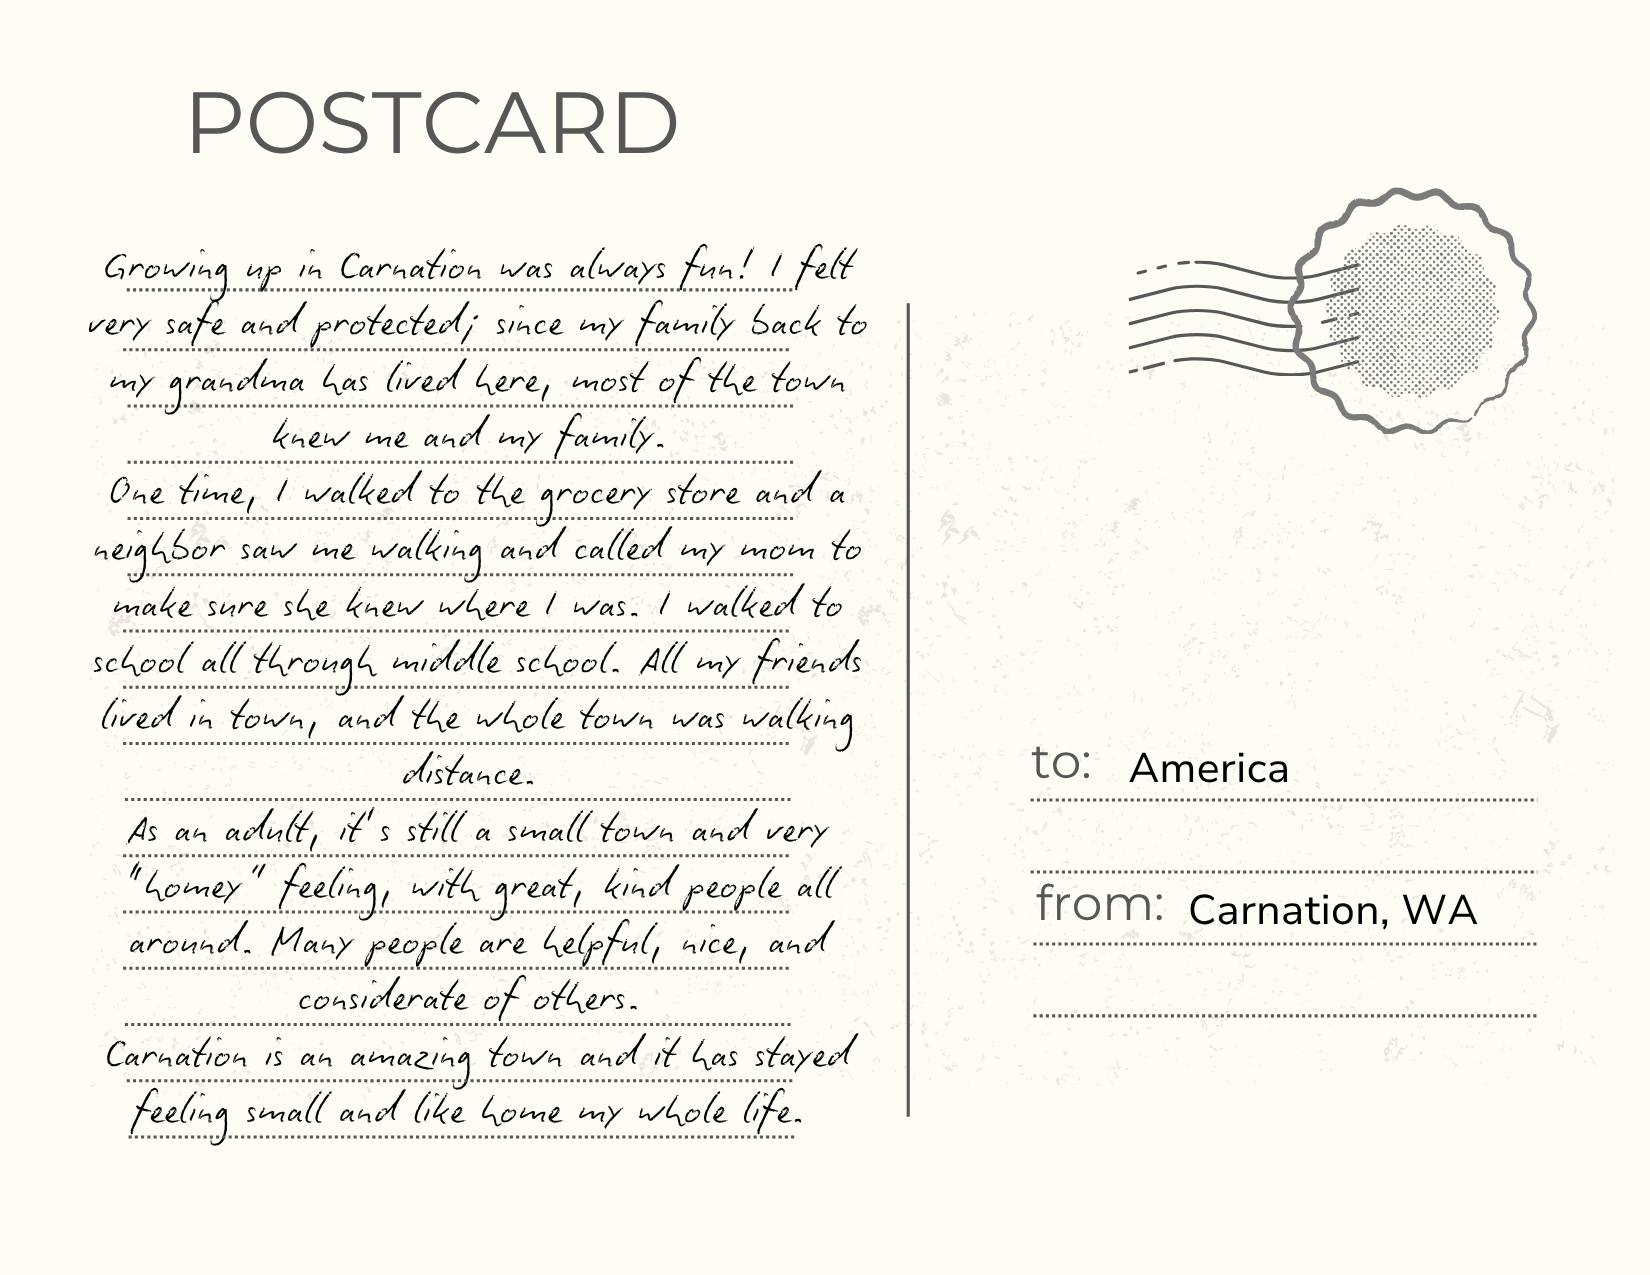 POSTCARD
Growing up in Carnation was always fun! I felt
very safe and protected; since my family back to
my grandma has lived here, most of the town
knew me and my family.
One time, I walked to the grocery store and a
neighbor saw me walking and called my mom to
make sure she knew where I was. I walked to
school all through middle school. All my friends
lived in town, and the whole town was walking
distance.
As an adult, it's still a small town and very
"homey" feeling, with great, kind people all
around. Many people are helpful, nice, and
considerate of others.
Carnation is an amazing town and it has stayed
feeling small and like home my whole life.
to: America
from: Carnation, WA